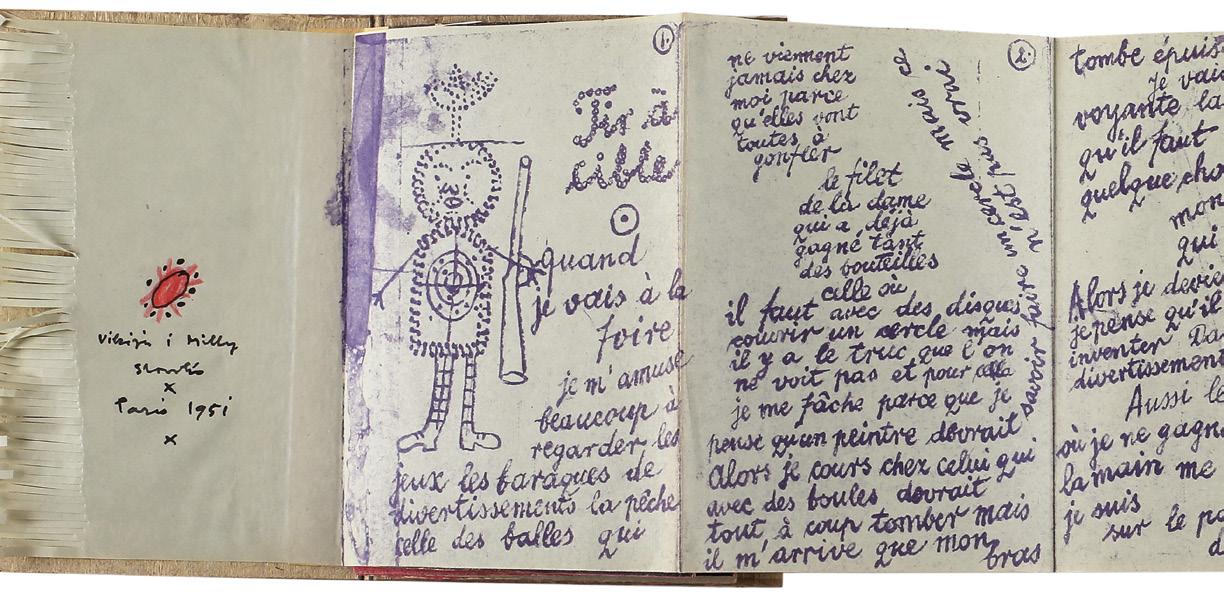 x
Paris 1951
x
1.
Tir à
cible
quand
je vais à la
foire
je m'amuse
beaucoup à
regarder les
jeux les baraques de
divertissements la pêche
celle des balles qui
2.
ne viennent
jamais chez
moi parce
qu'elles vont
toutes à
gonfler
le filet
de la dame
qui a déjà
gagné tant
des bouteilles
celle où
il faut avec des disques
couvrir un cercle mais
il y a le truc que l'on
ne voit pas et pour cela
je me fâche parce que je
pense qu'un peintre devrait
savoir faire un cercle mais ce
n'est pas vrai.
Alors je cours chez celui qui
avec des boules devrait
tout à coup tomber mais
il m'arrive que mon bras
tombe épuis
je vai
voyante la
qu'il faut
quelque cho
mon
qui
Alors je devie
je pense qu'il
inventer Da
divertissement
Aussi le
où je ne gagn
la main me
je suis
sur le po
d